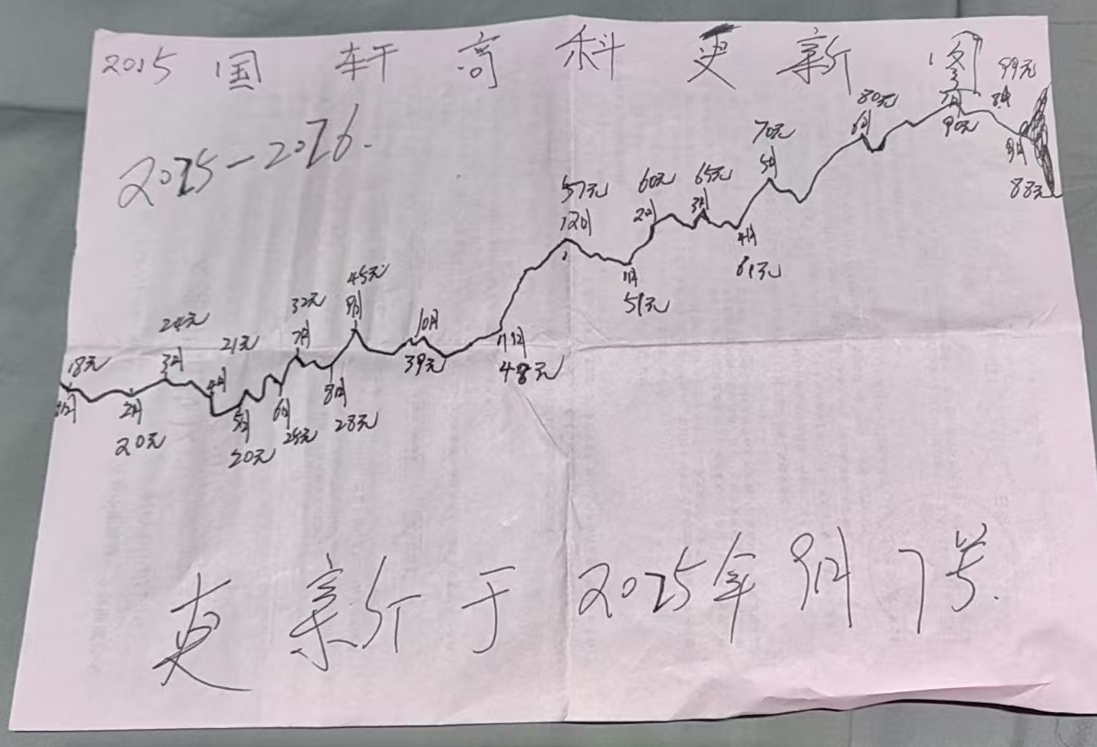 2025 国轩高科更新图
2025-2026.
99元
8月
80元
8月
7月
90元
9月
88元
70元
5月
57元
12月
60元
2月
65元
3月
4月
61元
1月
51元
45元
9月
32元
7月
10月
39元
11月
48元
24元
3月
21元
4月
18元
2月
20元
5月
20元
6月
25元
8月
28元
更新于2025年9月7号.